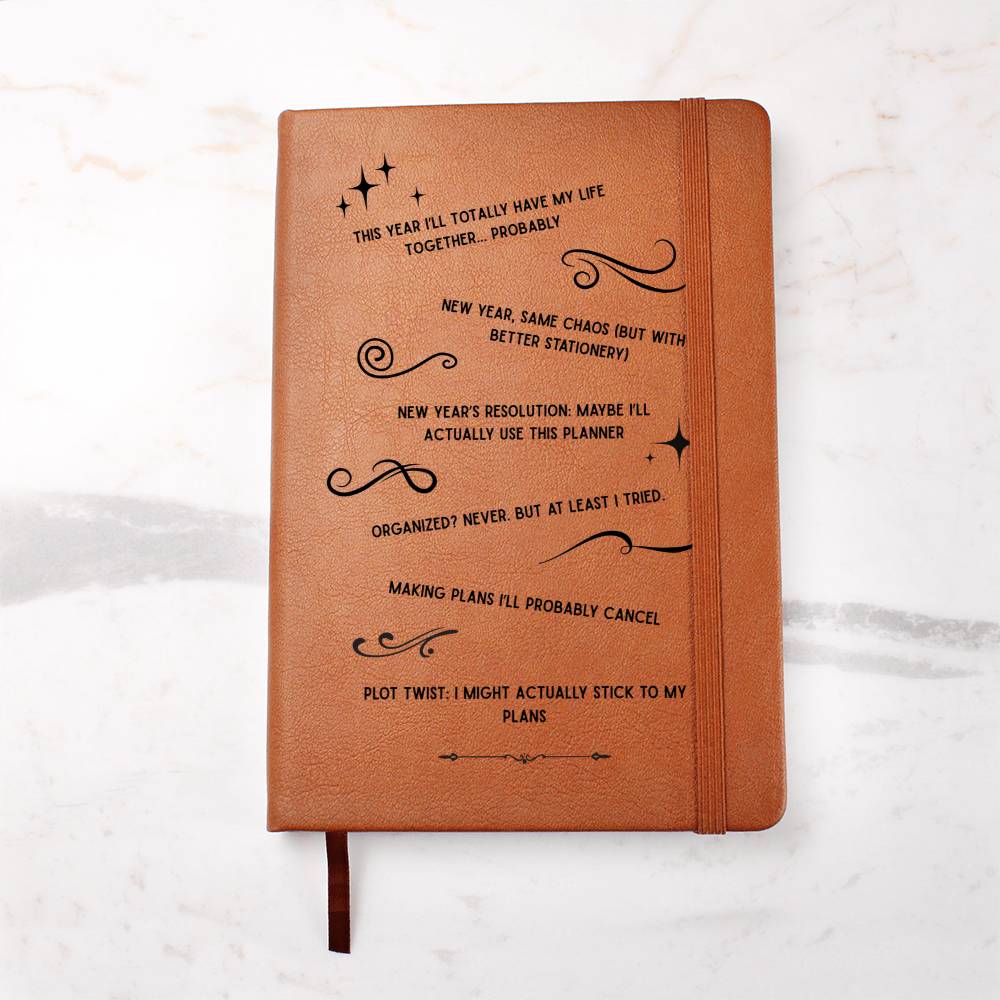 THIS YEAR I'LL TOTALLY HAVE MY LIFE
TOGETHER... PROBABLY
NEW YEAR, SAME CHAOS (BUT WITH
BETTER STATIONERY)
NEW YEAR'S RESOLUTION: MAYBE I'LL
ACTUALLY USE THIS PLANNER
ORGANIZED? NEVER. BUT AT LEAST I TRIED.
MAKING PLANS I'LL PROBABLY CANCEL
PLOT TWIST: I MIGHT ACTUALLY STICK TO MY
PLANS